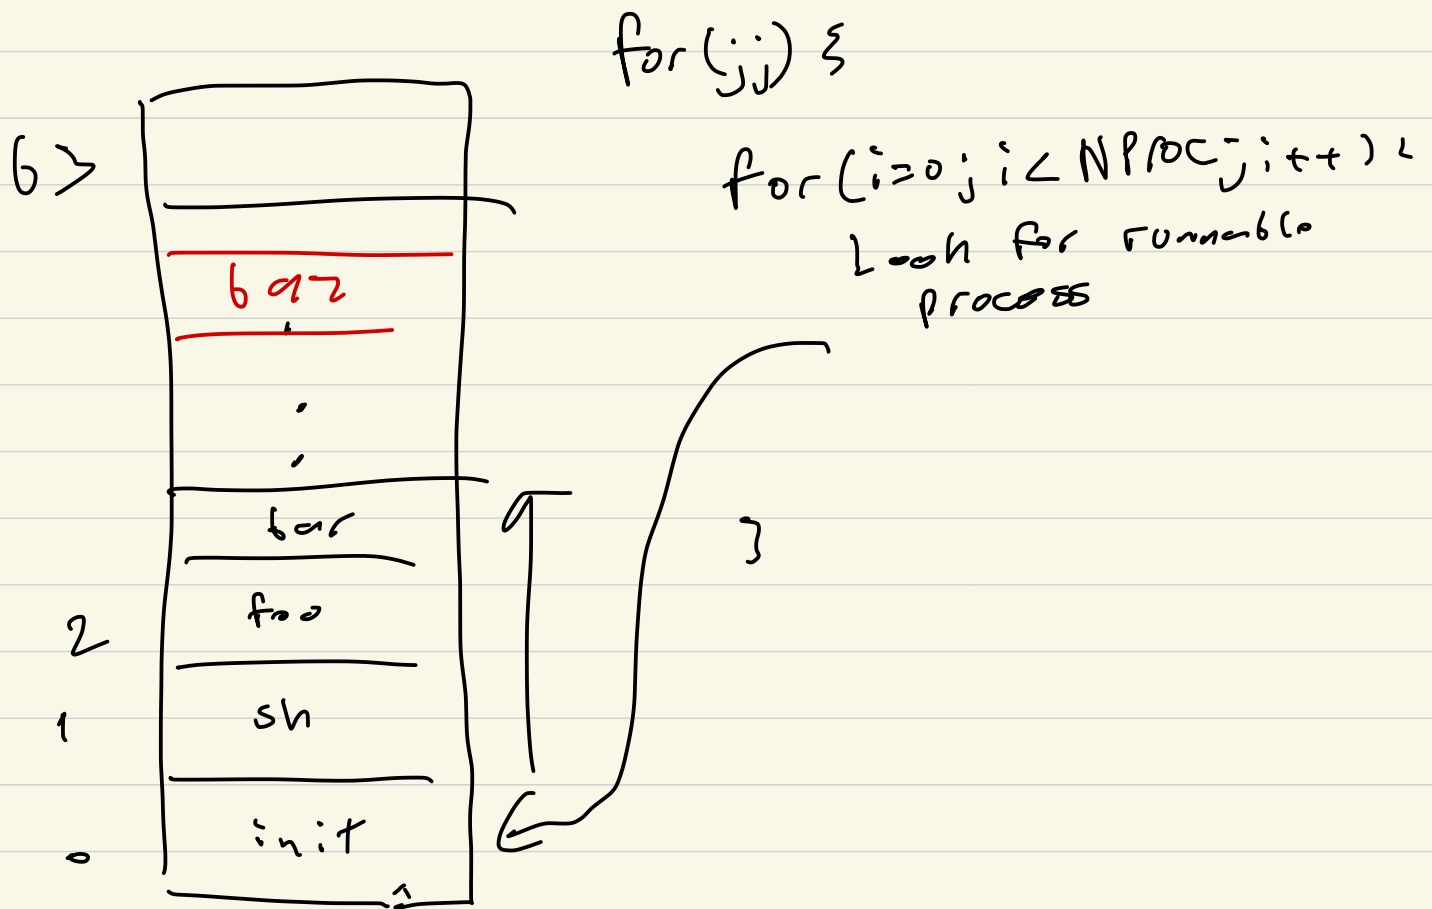 for(;;) {
for(i=0; i< NPROC; i++) {
Look for runnable
process
}
63
baz
bar
2 foo
1 sh
0 init